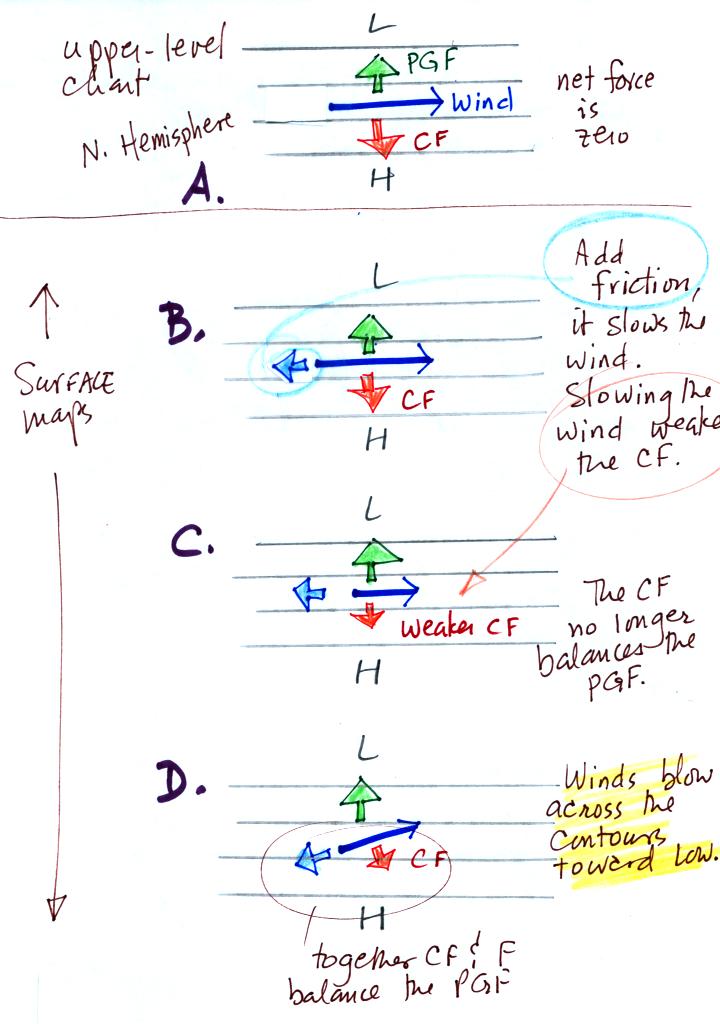 upper-level
chart
N. Hemisphere
A.
L
PGF
Wind
CF
H
net force
is
zero
Surface
maps
B.
L
CF
H
Add
friction,
it slows the
wind.
Slowing the
wind weake
the CF.
C.
L
weaker CF
H
The CF
no longer
balances the
PGF.
D.
L
CF
H
together CF & F
balance the PGF
Winds blow
across the
contours
toward Low.